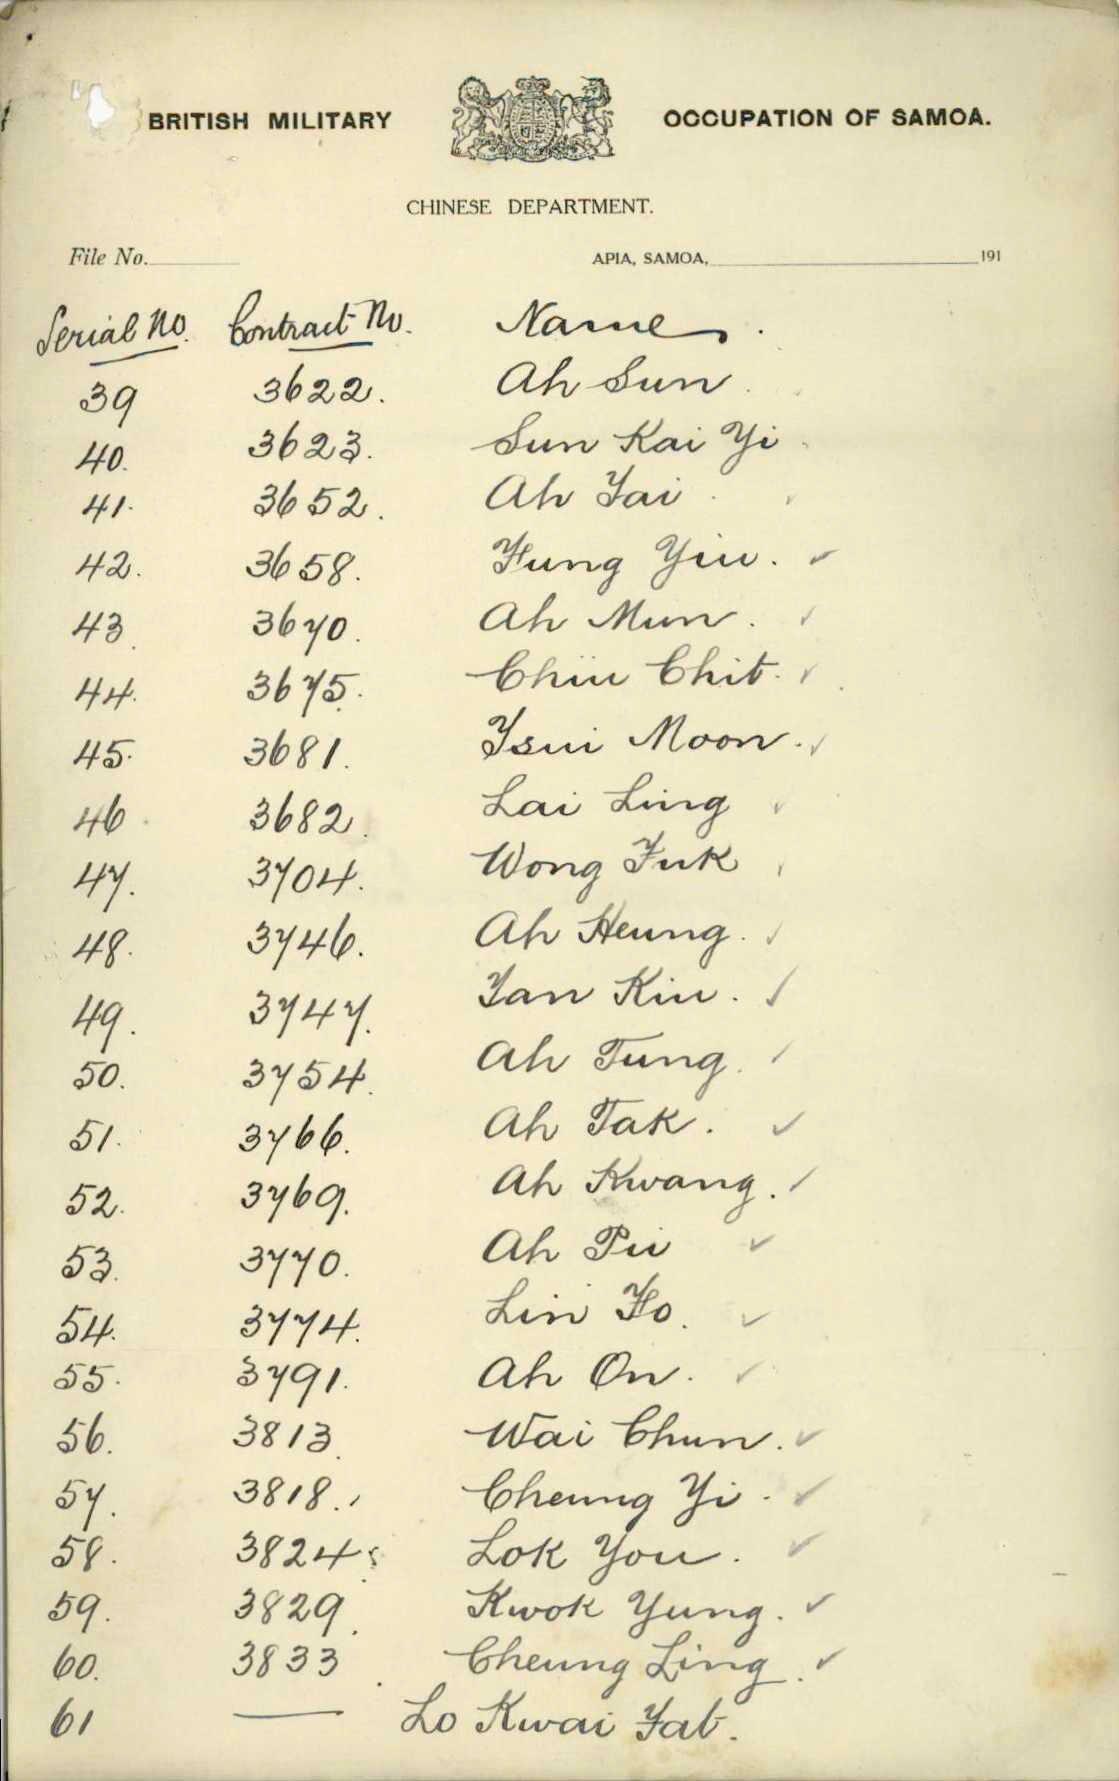 BRITISH MILITARY OCCUPATION OF SAMOA.
CHINESE DEPARTMENT.
File No. APIA, SAMOA, 191
Serial No. Contract No. Name.
39 3622. Ah Sun
40. 3623. Sun Kai Yi
41. 3652. Ah Tai
42. 3658. Fung Yiu.
43. 3670. Ah Mun.
44. 3675. Chiu Chit.
45. 3681. Tsui Moon.
46. 3682. Lai Ling
47. 3704. Wong Fuk
48. 3746. Ah Heung.
49. 3747. Tan Kiu.
50. 3754. Ah Tung.
51. 3766. Ah Tak.
52. 3769. Ah Kwang.
53. 3770. Ah Pui
54. 3774. Lin Fo.
55. 3791. Ah On.
56. 3813. Wai Chun.
57. 3818. Cheung Yi.
58. 3824. Lok You.
59. 3829. Kwok Yung.
60. 3833. Cheung Ling.
61 — Lo Kwai Fat.